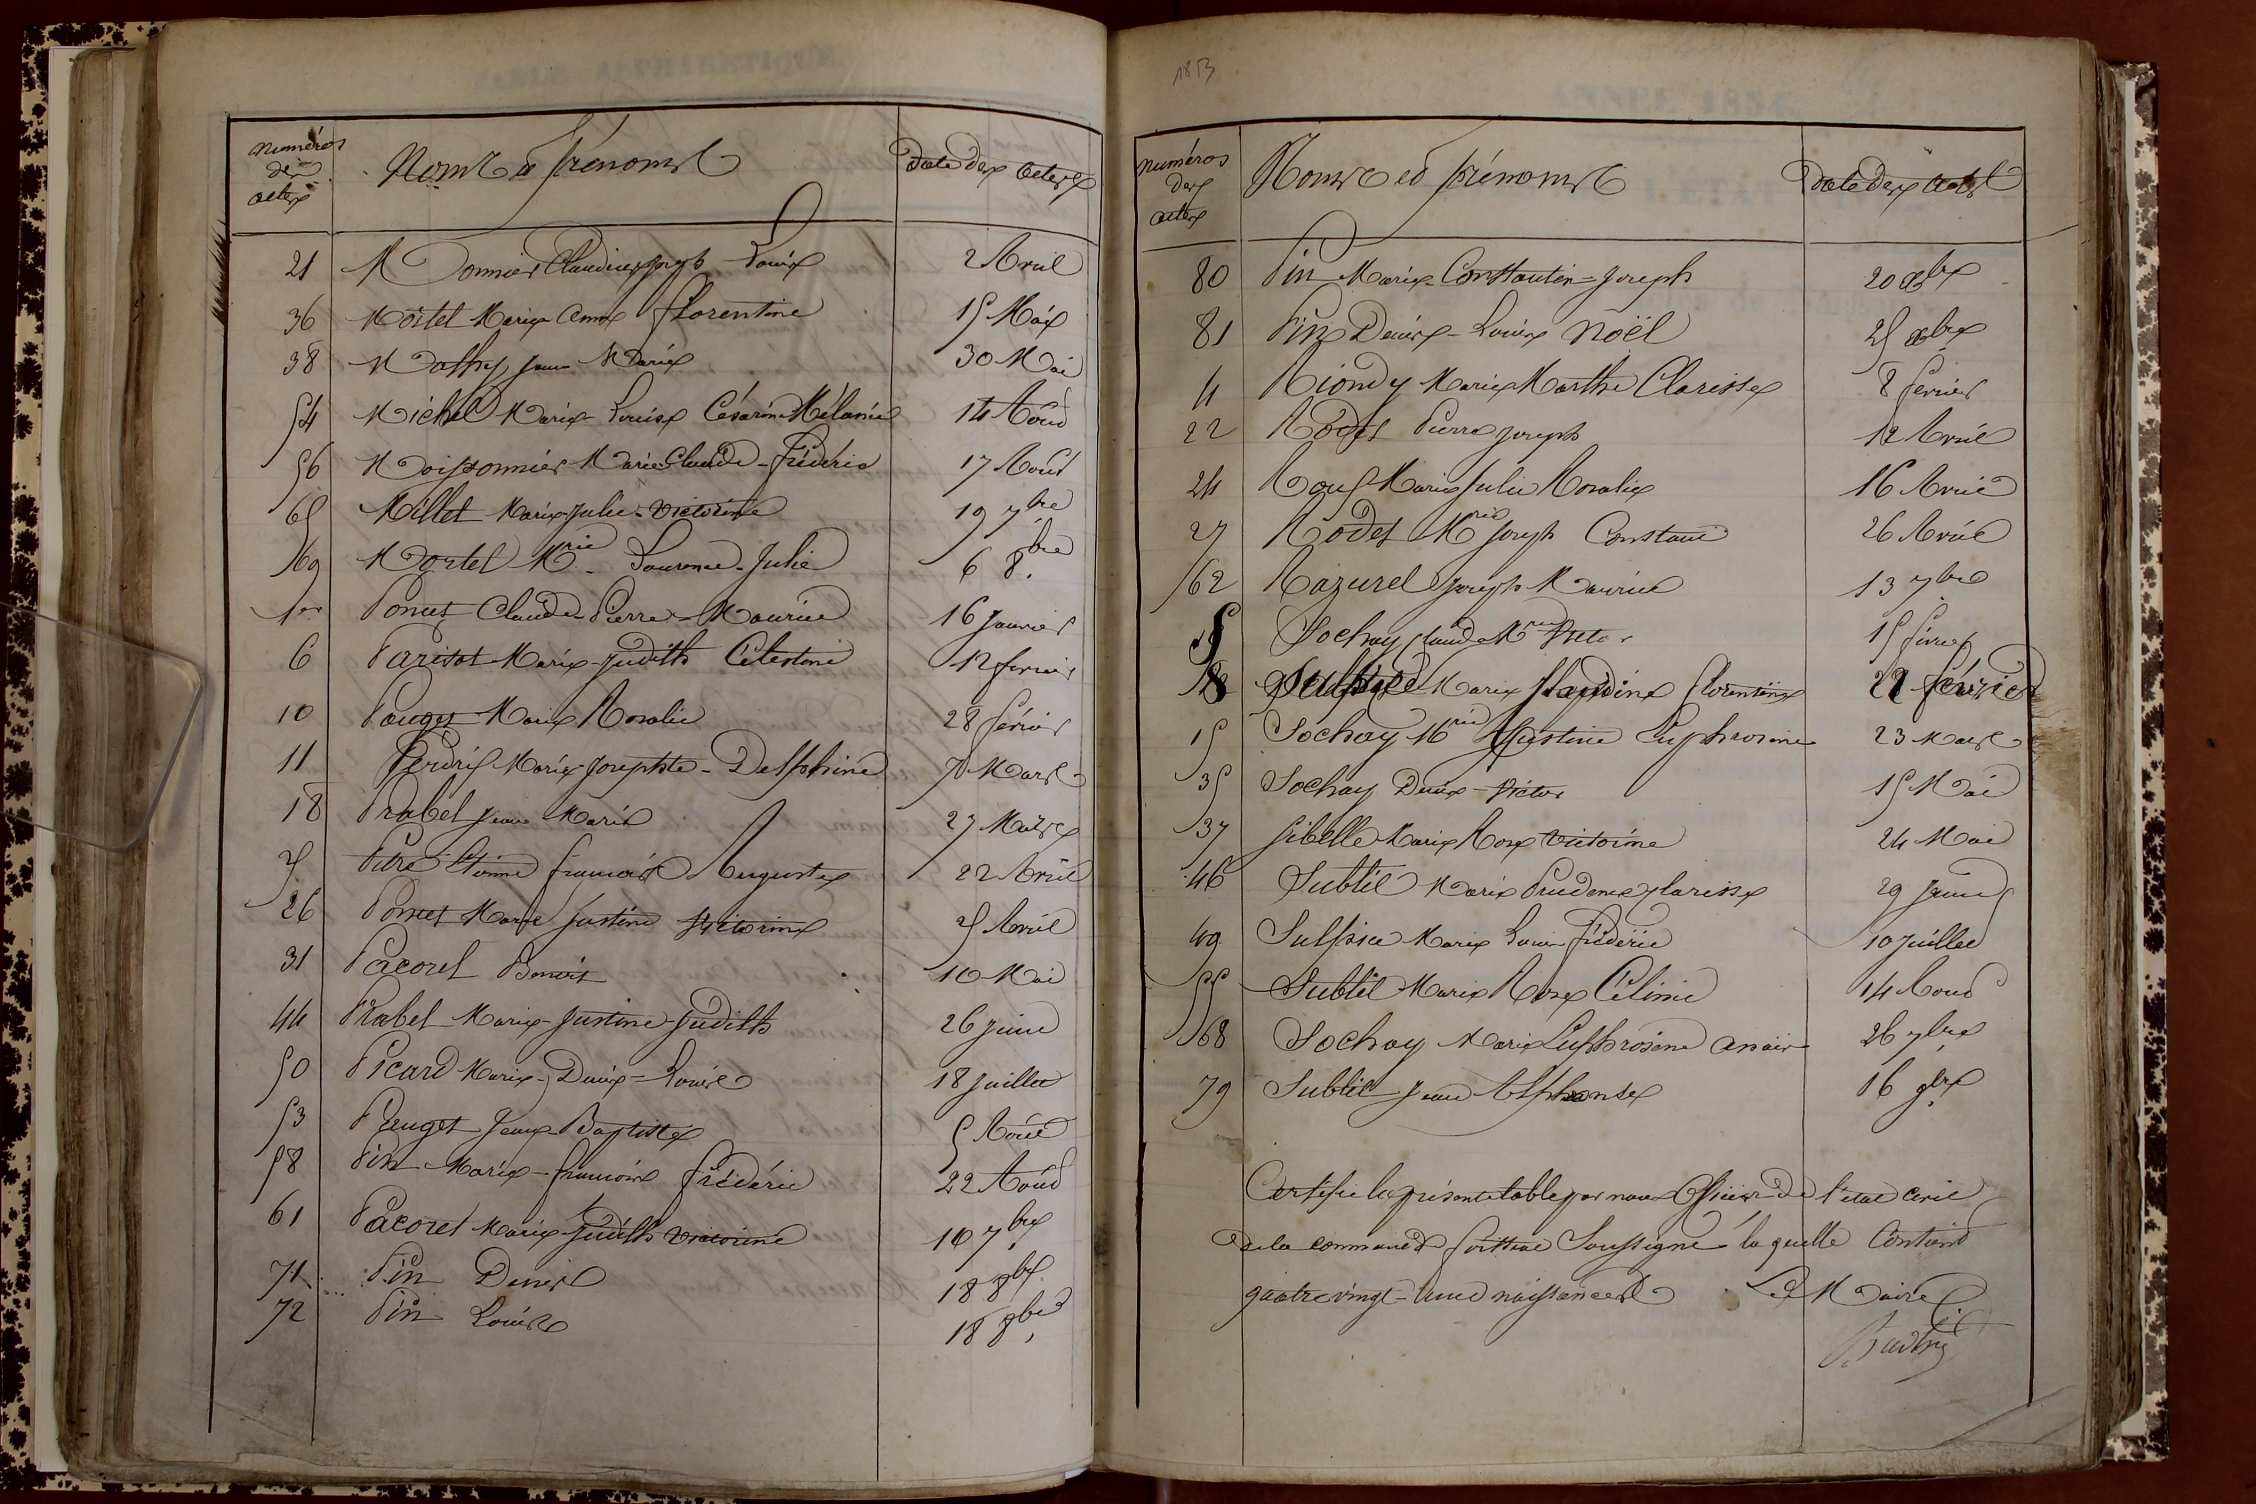 Numéros des actes Noms & Prénoms Date des actes
21 Monnier Claudius Joseph Louis 2 Avril
36 Mortel Marie Anne Florentine 15 Mai
38 Mathy Jean Marie 30 Mai
54 Michel Marie Louise Césarine Mélanie 14 Août
56 Moissonnier Marie Claude Frédéric 17 Août
65 Millet Marie Julie Victorine 19 7bre
69 Mortel Mrie Laurence Julie 6 8bre
1er Poncet Claude Pierre Maurice 16 Janvier
6 Parisot Marie Judith Célestine 12 février
10 Pauget Marie Rosalie 28 février
11 Perdrix Marie Josephte Delphine 7 Mars
18 Prabel Jean Marie 27 Mars
25 Etienne François Auguste 22 Avril
26 Poncet Marie Justine Victorine 25 Avril
31 Pacoret Benoit 10 Mai
44 Prabel Marie Justine Judith 26 Juin
50 Picard Marie Denis Louise 18 Juillet
53 Pauget Jean Baptiste 5 Août
58 Pin Marie François Frédéric 22 Août
61 Pacoret Marie Judith Victorine 10 7bre
71 Pin Denise 18 8bre
72 Pin Louise 18 8bre
1853
Numéros des actes Noms et Prénoms Date des actes
80 Pin Marie Constantin Joseph 20 Xbre
81 Pin Denis Louis Noël 25 Xbre
4 Riondy Marie Marthe Clarisse 8 février
22 Rodet Pierre Joseph 12 Avril
24 Roux Marie Julie Rosalie 16 Avril
27 Rodet Mrie Joseph Constant 26 Avril
62 Razurel Joseph Maurice 13 7bre
Sochay Claude Mrie Victor 15 février
8 Sulpice Marie Claudine Florentine 22 février
15 Sochay Mrie Justine Euphrosine 23 Mars
35 Sochay Denis Victor 15 Mai
37 Sibelle Marie Rose Victorine 24 Mai
46 Subtil Marie Prudence Clarisse 29 Juin
49 Sulpice Marie Louis Frédéric 10 Juillet
55 Subtil Marie Rose Célinie 14 Août
68 Sochay Marie Euphrosine Anaïs 26 7bre
79 Subtil Jean Alphonse 16 9bre
Certifié la présente table par nous Officier de l'etat civil
de la commune de Soussigné laquelle Contient
quatre vingt une naissances Le Maire